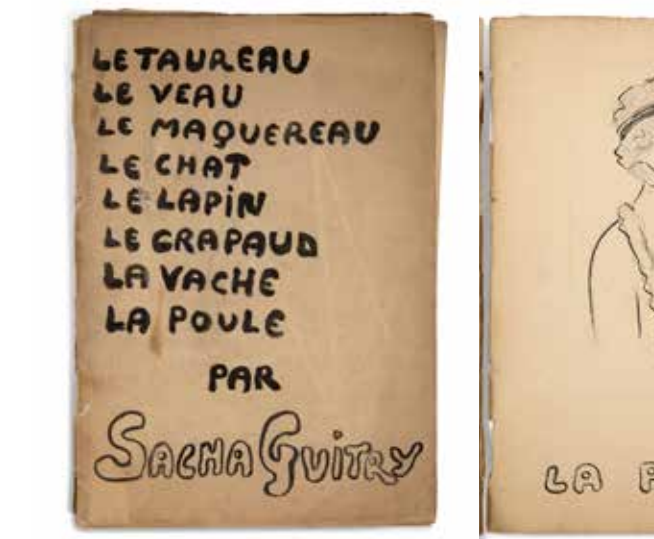 LE TAUREAU
LE VEAU
LE MAQUEREAU
LE CHAT
LE LAPIN
LE CRAPAUD
LA VACHE
LA POULE
PAR
SACHA GUITRY
LA